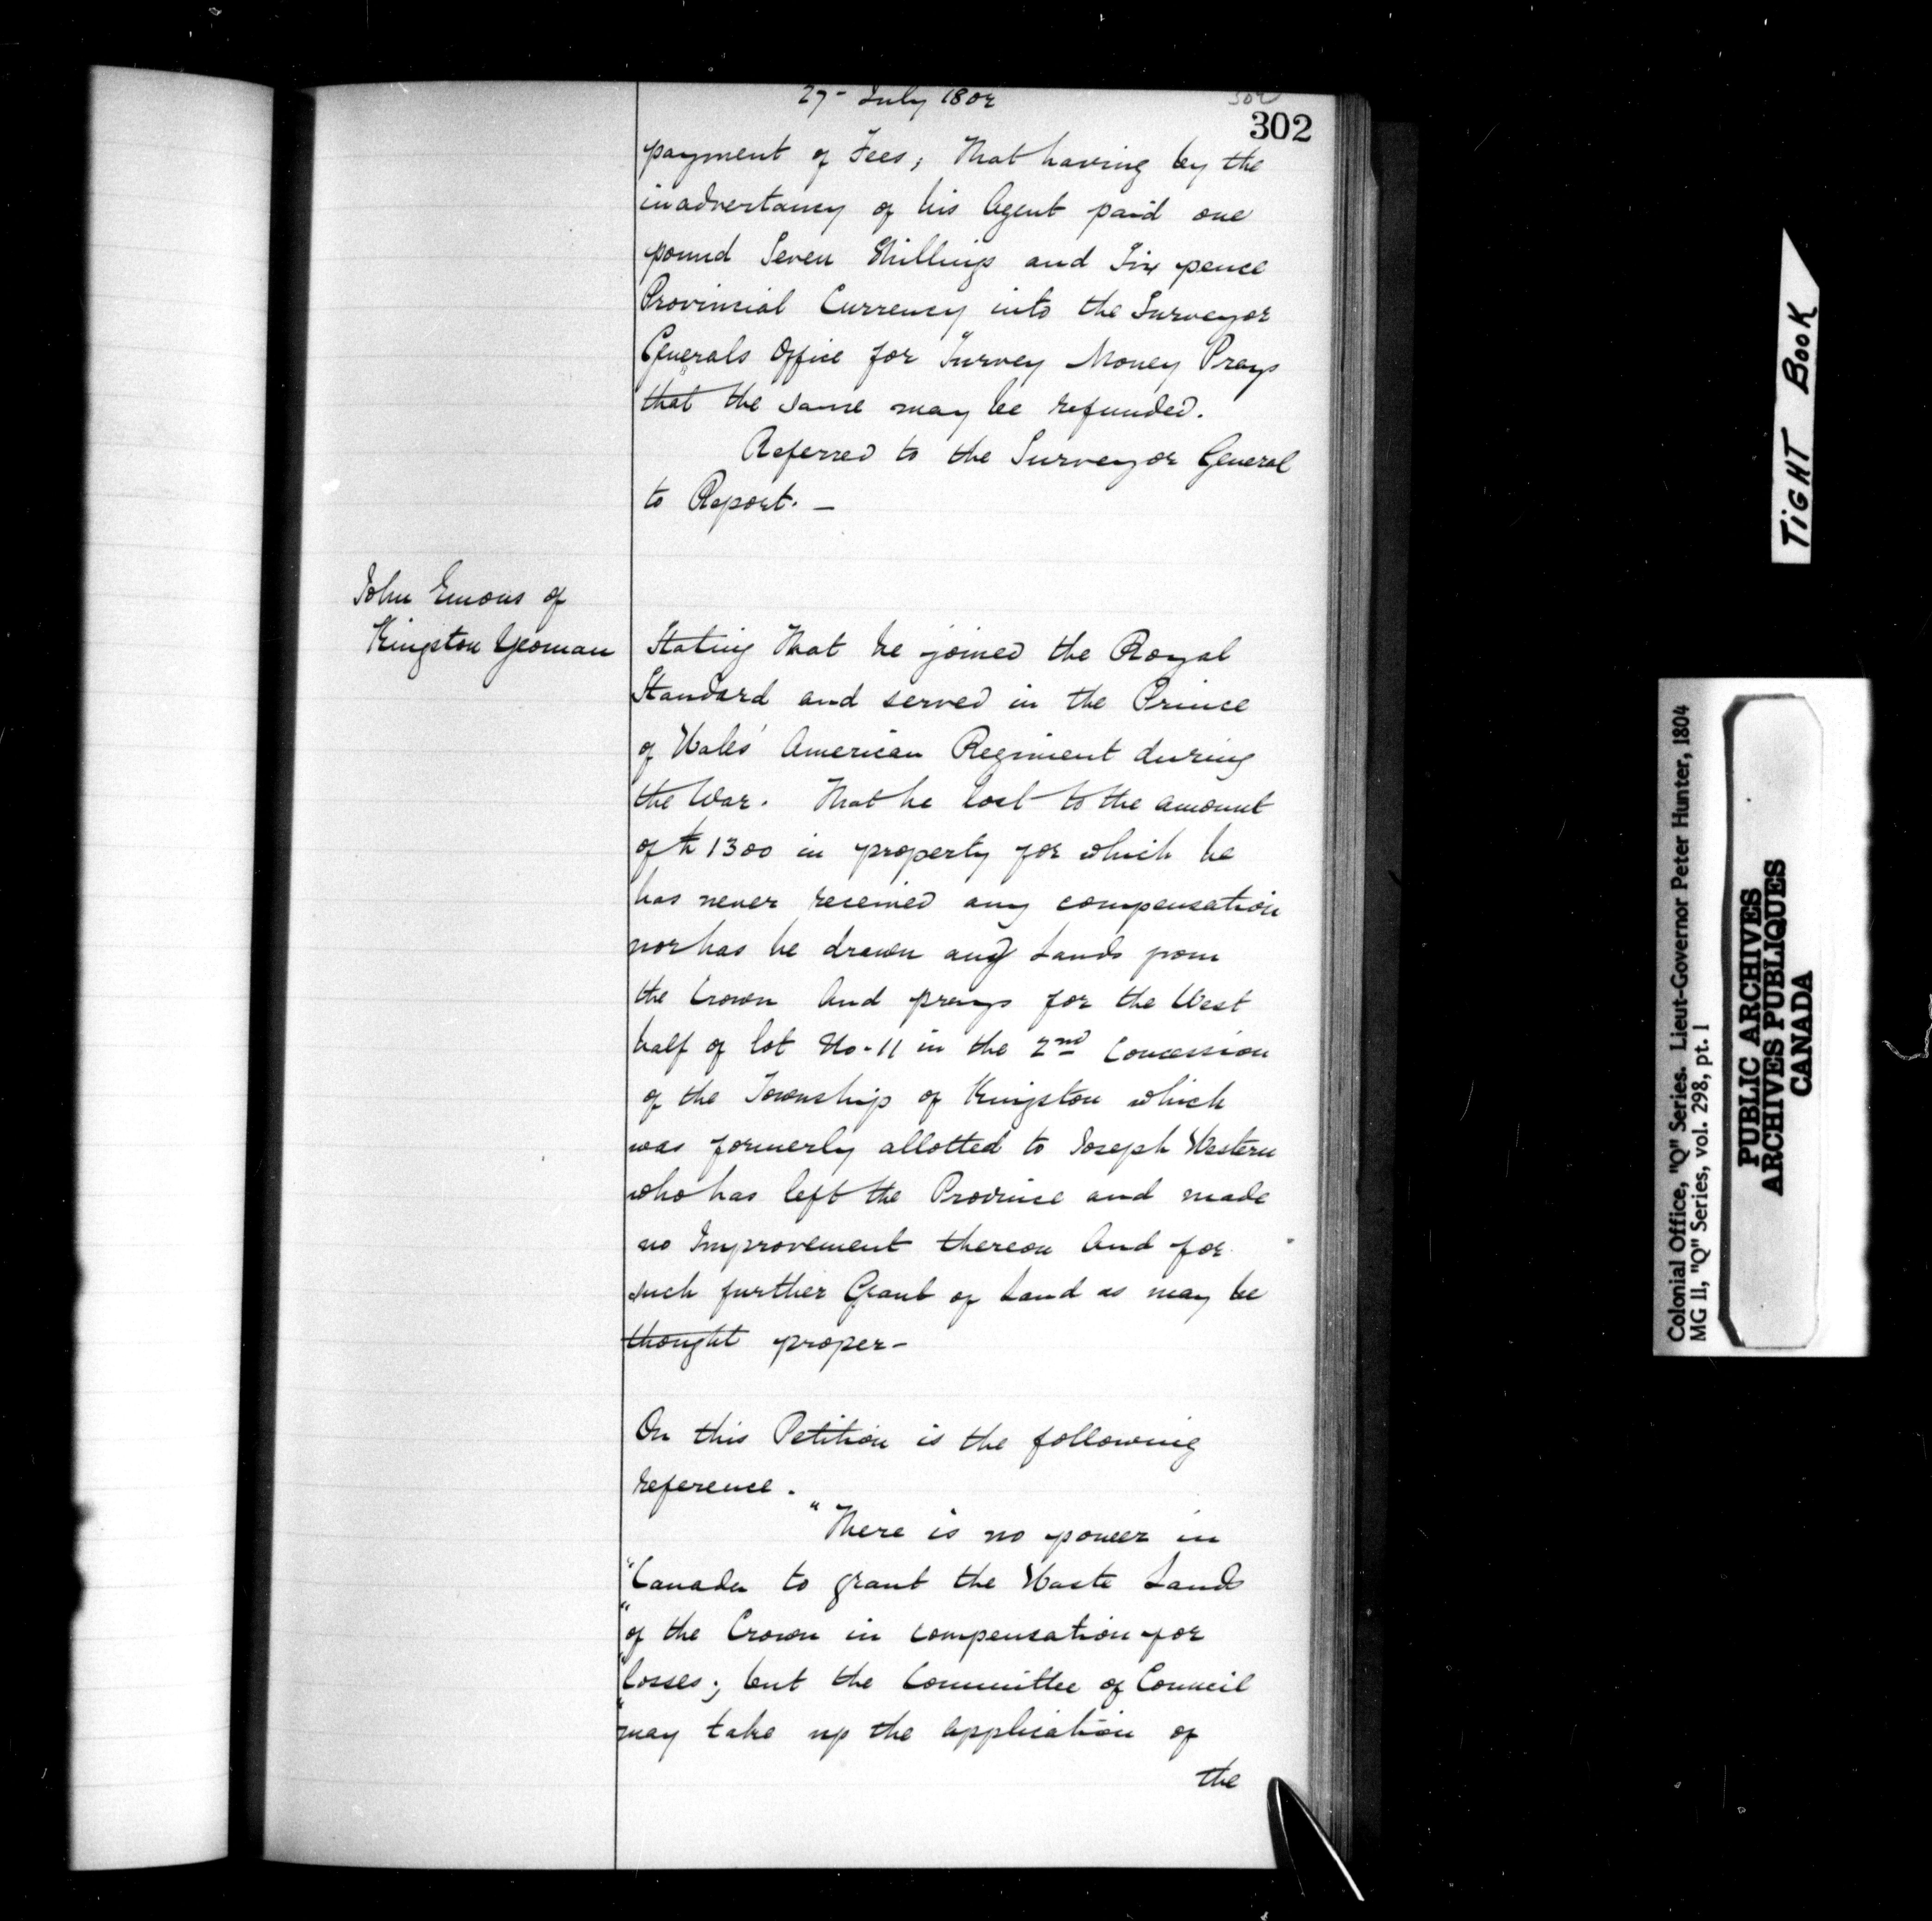 27- July 1802
302
302
payment of Fees; That having by the
inadvertancy of his Agent paid one
pound Seven Shillings and Six pence
Provincial Currency into the Surveyor
Generals Office for Survey Money Prays
that the same may be refunded.
Referred to the Surveyor General
to Report. —
John Emons of
Kingston Yeoman
Stating That he joined the Royal
Standard and served in the Prince
of Wales' American Regiment during
the War. That he lost to the amount
of £1300 in property for which he
has never received any compensation
nor has he drawn any Lands from
the Crown And prays for the West
half of lot No. 11 in the 2nd Concession
of the Township of Kingston which
was formerly allotted to Joseph Western
who has left the Province and made
no Improvement thereon And for
such further Grant of Land as may be
thought proper-
On this Petition is the following
reference.
"There is no power in
"Canada to grant the Waste Lands
"of the Crown in compensation for
"losses; but the Committee of Council
"may take up the application of
the
TiGHT BooK
Colonial Office, "Q" Series. Lieut-Governor Peter Hunter, 1804
MG 11, "Q" Series, vol. 298, pt. 1
PUBLIC ARCHIVES
ARCHIVES PUBLIQUES
CANADA